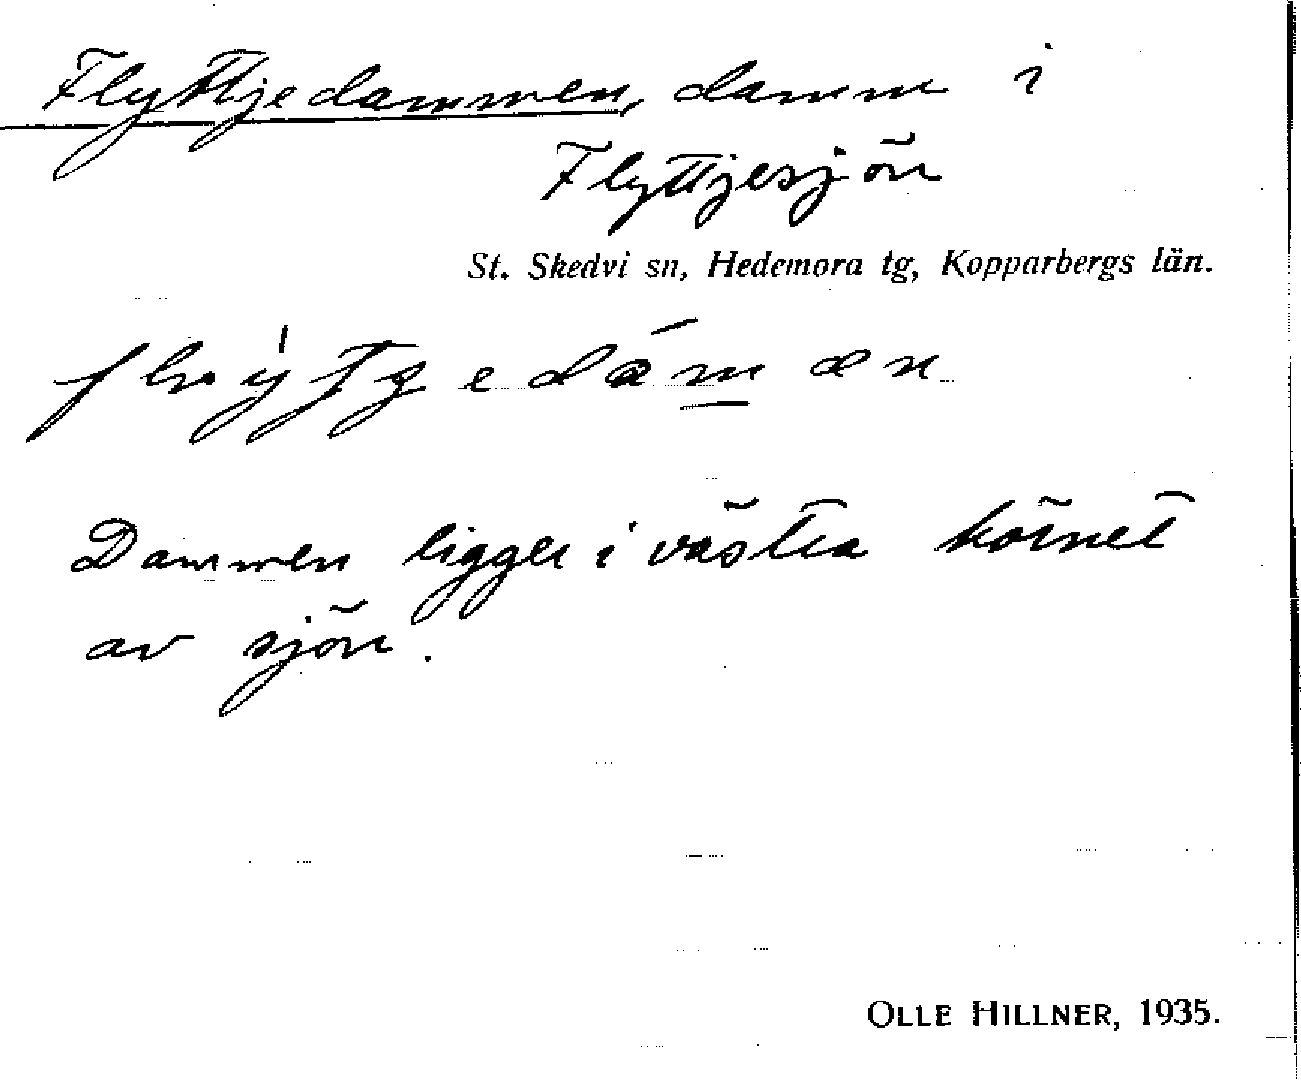 Flyttjedammen, damm i
Flyttjesjön
St. Skedvi sn, Hedemora tg, Kopparbergs län.
Dammen ligger i västra hörnet
av sjön.
OLLE HILLNER, 1935.